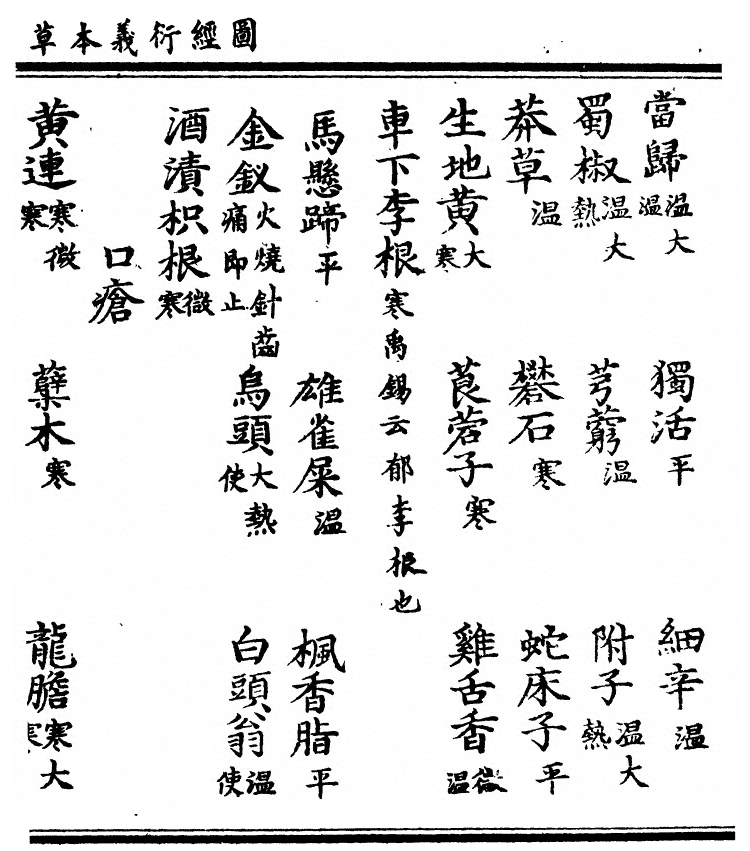 圖經衍義本草
當歸温大温 獨活平 細辛温
蜀椒温大熱 芎藭温 附子温大熱
莽草温 礬石寒 蛇床子平
生地黄大寒 莨菪子寒 雞舌香微温
車下李根寒禹錫云郁李根也
馬懸蹄平 雄雀屎温 楓香脂平
金釵火燒針齒痛即止 烏頭大熱使 白頭翁温使
酒漬枳根微寒
口瘡
黄連寒微寒 蘗木寒 龍膽寒大寒